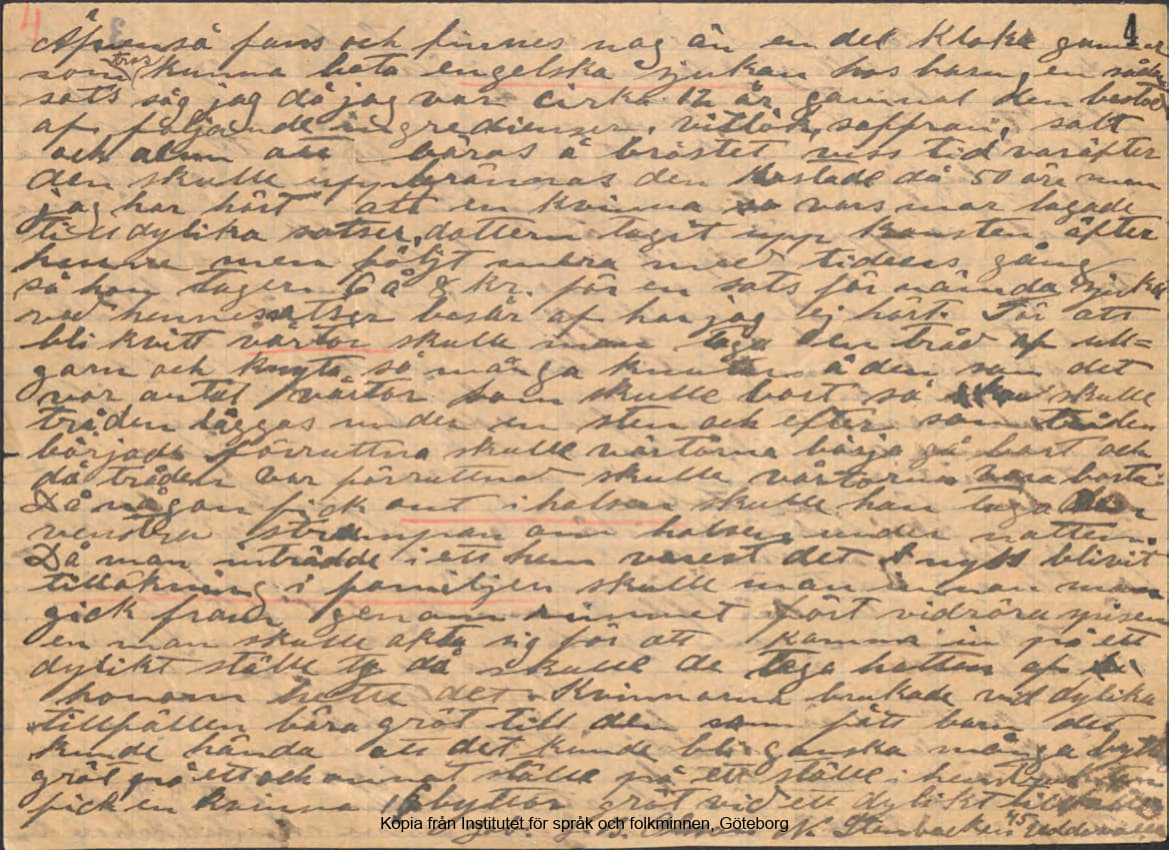 4 4
Äfvenså fans och finnes nog än en del kloka gummor
som tros kunna bota engelska sjukan hos barn, en sådan
sats såg jag då jag var cirka 12 år gammal den bestod
af följande ingredienser. vitlök, saffran, salt
och alun att bäras å bröstet viss tid varefter
den skulle uppbrännas den kostade då 50 öre men
jag har hört att en kvinna vars mor lagade
till dylika satser, dottern tagit upp konsten äfter
henne men följt mera med tidens gång
så hon tager 6 å 8 kr. för en sats för nämnda sjuka
vad hennes satser består af har jag ej hört. För att
bli kvitt vårtor skulle man taga en tråd af ull-
garn och knyta så många knutar å den som det
var antal vårtor som skulle bort så skulle
tråden läggas under en sten och efter som tråden
började förruttna skulle vårtorna börja gå bort och
då tråden var förruttnad skulle vårtorna vara borta.
Då någon fick ont i halsen skulle han taga den
venstra strumpan om halsen under natten.
Då man inträdde i ett hem varest det nyss blivit
tillökning i familjen skulle man innan man
gick fram genom rummet först vidröra spisen
en man skulle akta sig för att komma in på ett
dylikt ställe ty då skulle de taga hatten af
honom hette det. Kvinnorna brukade vid dylika
tillfällen bära gröt till den som fått barn det
kunde hända att det kunde bli ganska många byttor
gröt på ett och annat ställe på ett ställe i
fick en kvinna 16 byttor gröt vid ett dylikt tillfälle
Kopia från Institutet för språk och folkminnen, Göteborg
N. Stenbacken 45 Uddevalla